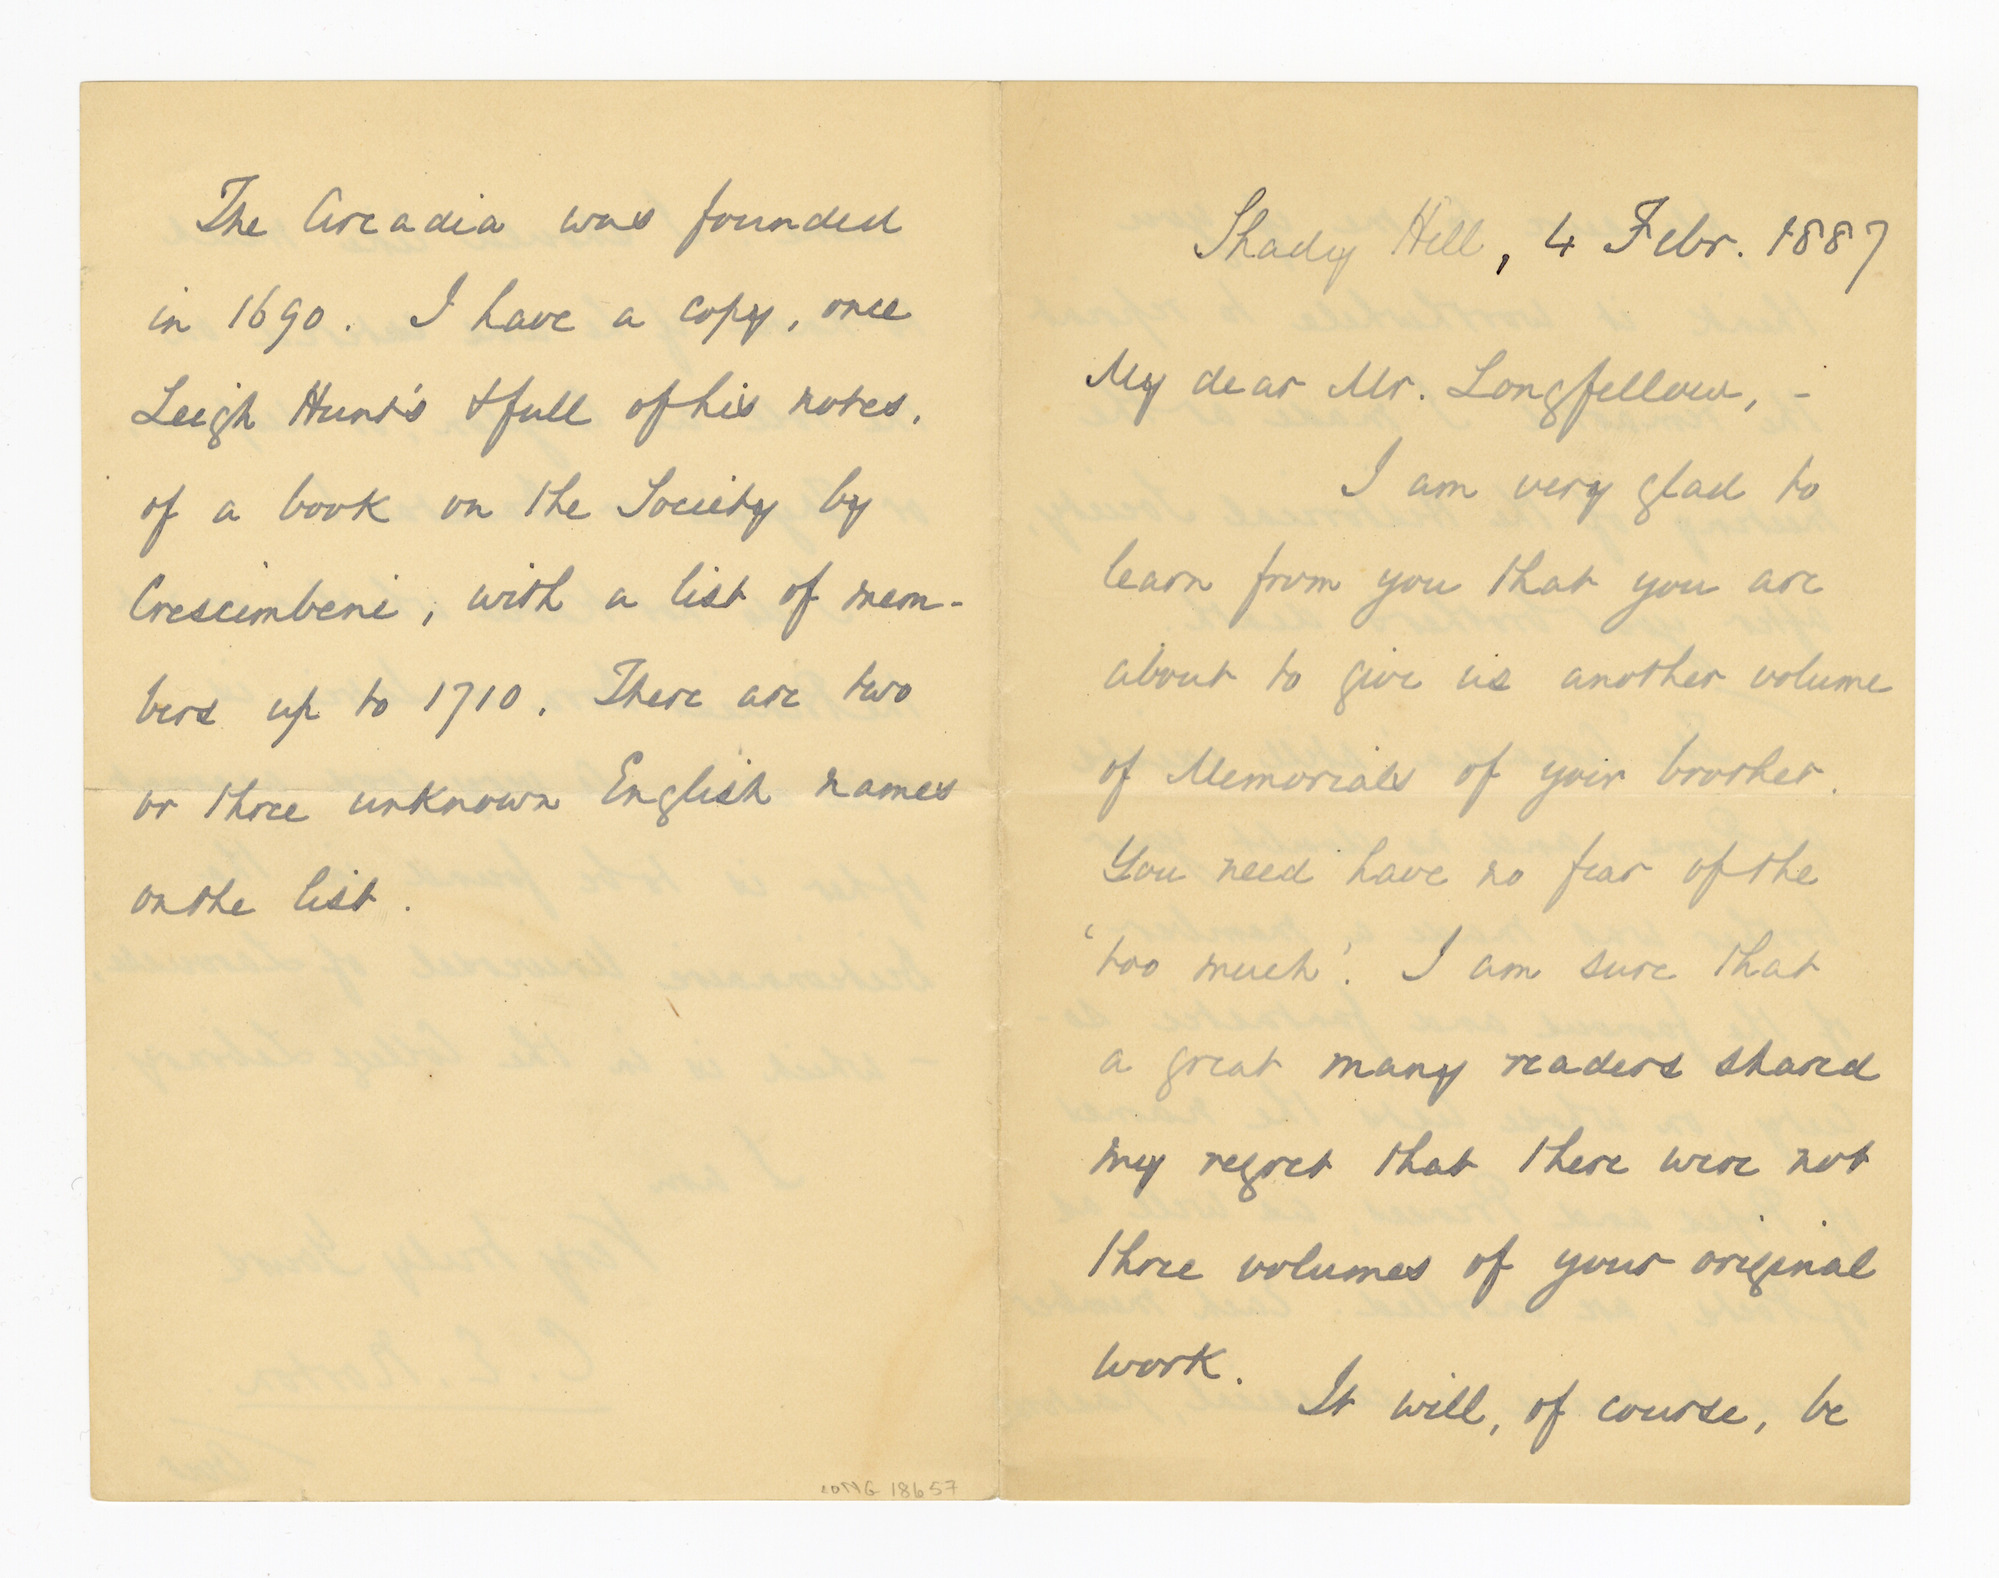 Shady Hill, 4 Febr. 1887
My dear Mr. Longfellow, -
I am very glad to
learn from you that you are
about to give us another volume
of Memorials of your brother.
You need have no fear of the
'too much'. I am sure that
a great many readers shared
my regret that there were not
three volumes of your original
work.
It will, of course, be
The Arcadia was founded
in 1690. I have a copy, once
Leigh Hunt's & full of his notes,
of a book on the Society by
Crescimbeni, with a list of mem-
bers up to 1710. There are two
or three unknown English names
on the list.
LONG 18657